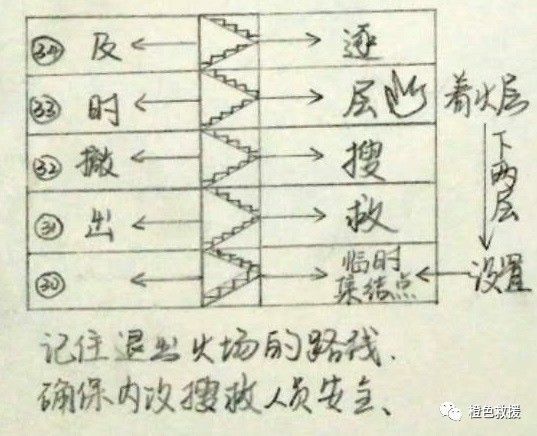 34 及 逐
33 时 层 着火层
32 撤 搜 下两层
31 出 救
30 临时集结点 设置
记住退出火场的路线、
确保内攻搜救人员安全、
橙色救援